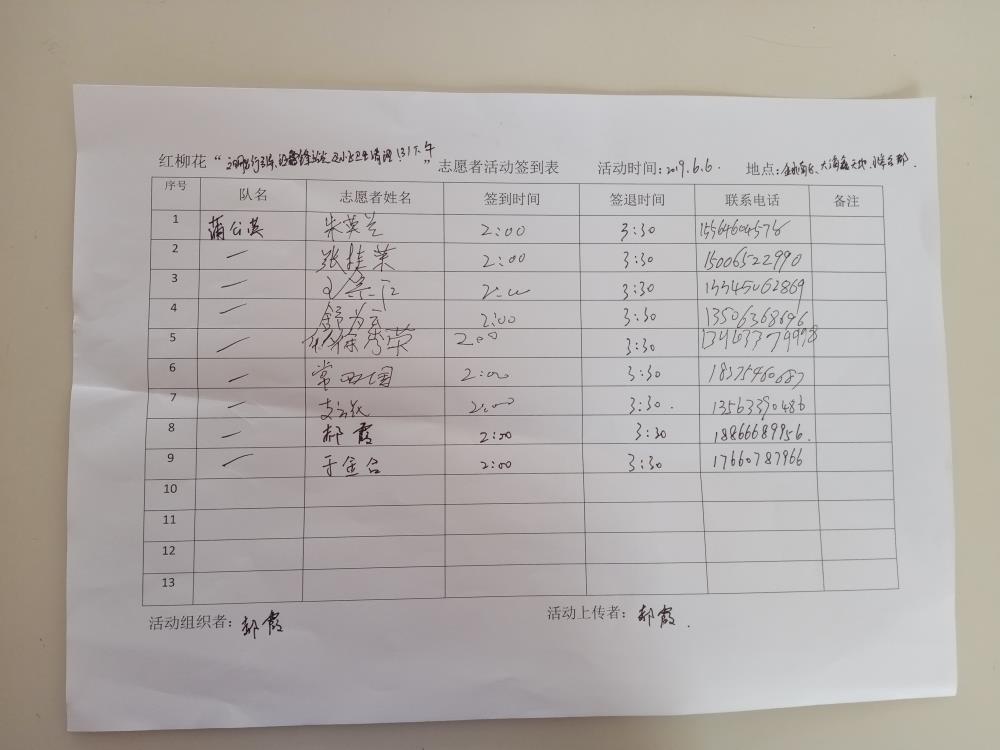 红柳花“ ”志愿者活动签到表 活动时间:2019.6.6. 地点:
序号 队名 志愿者姓名 签到时间 签退时间 联系电话 备注
1 蒲公英 朱英兰 2:00 3:30 15564604576
2 一 张桂英 2:00 3:30 15006522990
3 一 2:00 3:30 13345062869
4 一 舒为云 2:00 3:30 13506368696
5 一 秀荣 2:00 3:30 13463379998
6 一 常四国 2:00 3:30 18375460687
7 一 2:00 3:30. 13563390486
8 一 郝霞 2:00 3:30 18866689956.
9 一 于金合 2:00 3:30 17660787966
10
11
12
13
活动组织者:郝霞 活动上传者:郝霞.